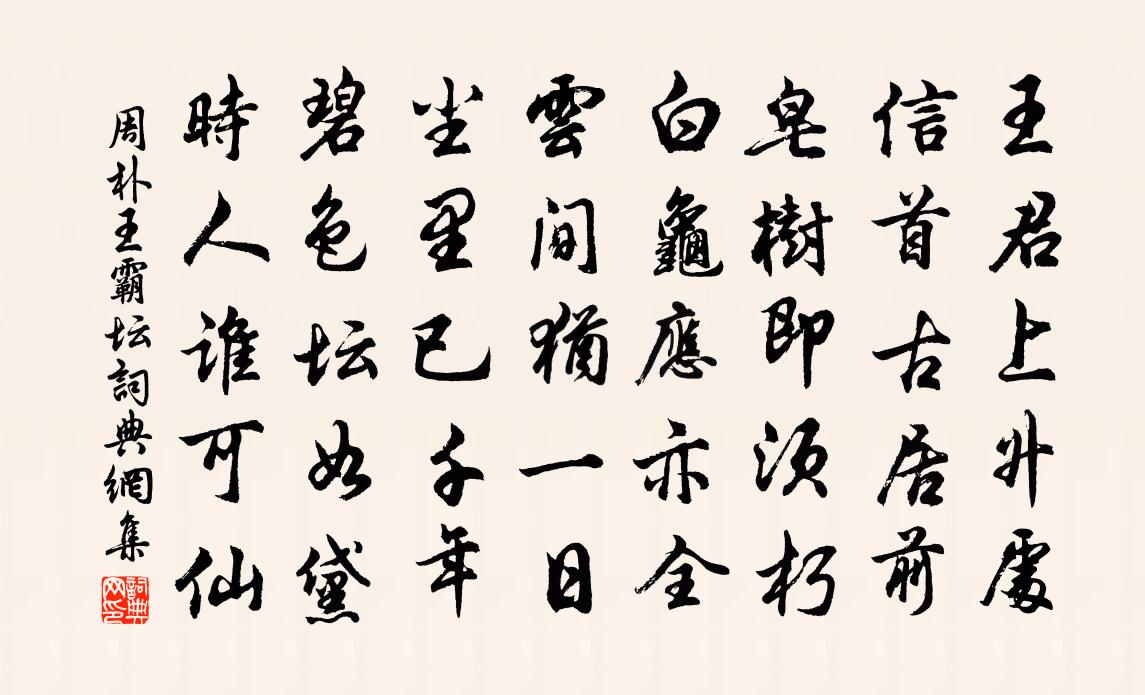 王君上升處
信首古居前
皂樹即須朽
白龜應亦全
雲間猶一日
尘里已千年
碧色坛如黛
時人誰可仙
周朴王霸坛詞典網集
詞典网印